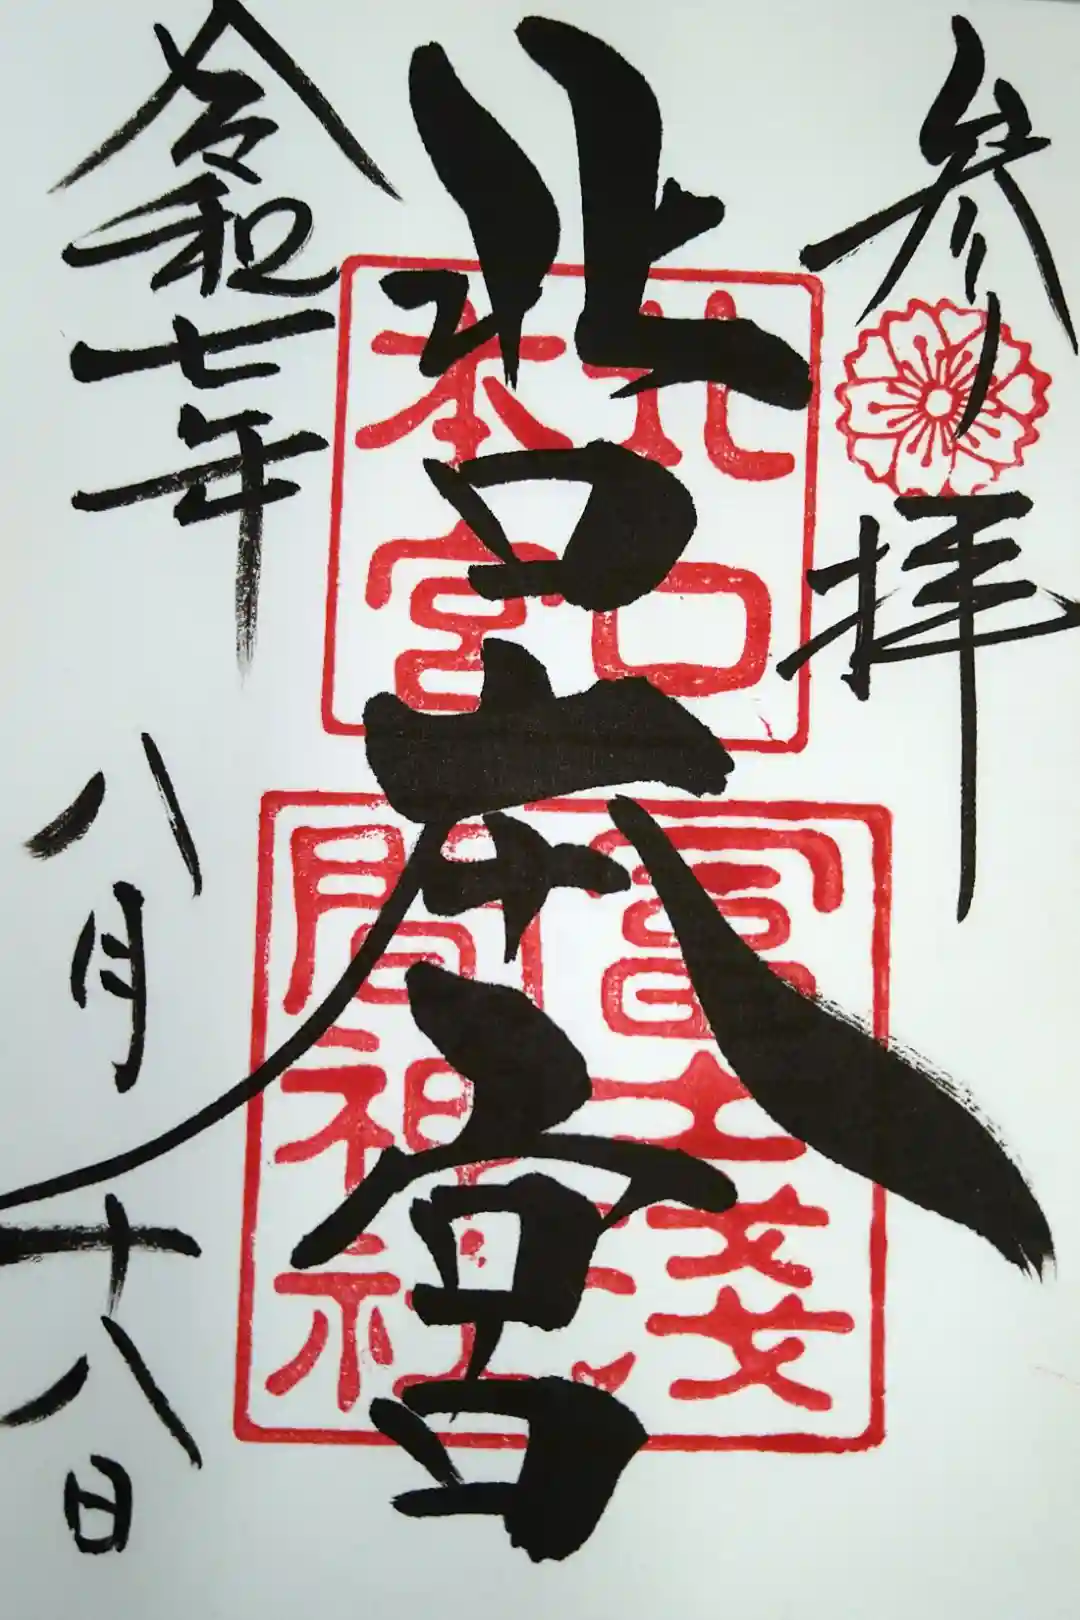 参拝
北口本宮
北口
本宮
冨士浅
間神社
令和七年
八月十八日